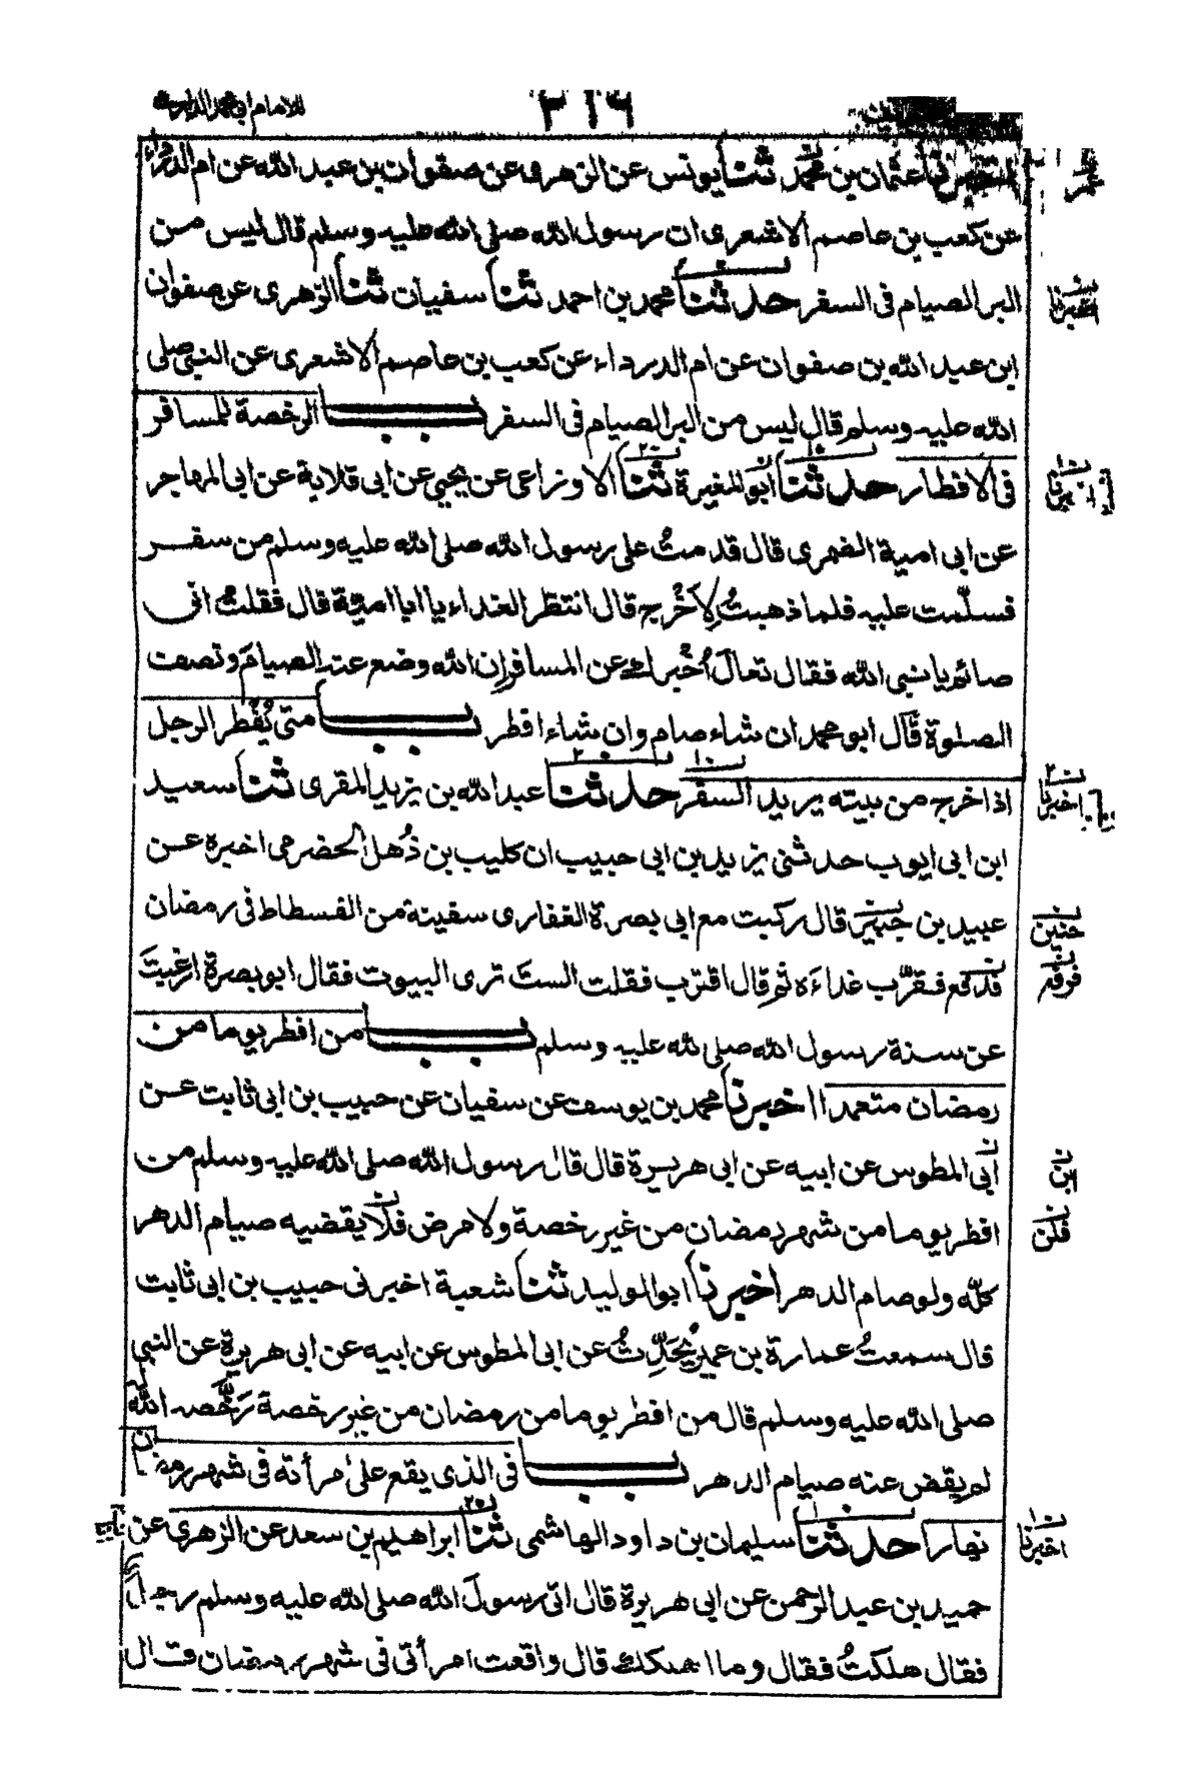 للامام ابي محمد الدارمي
٢١٦
عثمان بن محمد ثنا يونس عن الزهرى عن صفوان بن عبد الله عن ام الدرداء
عن كعب بن عاصم الاشعرى ان رسول الله صلى الله عليه وسلم قال ليس من
البر الصيام فى السفر حدثنا محمد بن احمد ثنا سفيان ثنا الزهرى عن صفوان
ابن عبد الله بن صفوان عن ام الدرداء عن كعب بن عاصم الاشعرى عن النبي صلى
الله عليه وسلم قال ليس من البر الصيام فى السفر باب الرخصة للمسافر
فى الافطار حدثنا ابو المغيرة ثنا الاوزاعى عن يحيى عن ابى قلابة عن ابى المهاجر
عن ابى امية الضمرى قال قدمتُ على رسول الله صلى الله عليه وسلم من سفر
فسلّمت عليه فلما ذهبتُ لاَخْرج قال انتظر الغداء يا ابا امية قال فقلتُ انى
صائم يا نبى الله فقال تعالَ اُخْبرك عن المسافر اِن الله وضع عنه الصيامَ ونصف
الصلوة قَالَ ابو محمد ان شاء صام وان شاء افطر باب متى يُفْطر الرجل
اذا خرج من بيته يريد السفر حدثنا عبد الله بن يزيد المقرى ثنا سعيد
ابن ابى ايوب حدثنى يزيد بن ابى حبيب ان كليب بن ذُهل الحضرمى اخبره عن
عبيد بن جبير قال ركبت مع ابى بصرة الغفارى سفينة من الفسطاط فى رمضان
فدفع فقرّب غداءَه ثم قال اقترب فقلت الستَ ترى البيوت فقال ابو بصرة ارغبتَ
عن سنة رسول الله صلى لله عليه وسلم باب من افطر يوما من
رمضان متعمدا اخبرنا محمد بن يوسف عن سفيان عن حبيب بن ابى ثابت عن
ابى المطوس عن ابيه عن ابى هريرة قال قال رسول الله صلى الله عليه وسلم من
افطر يوما من شهر رمضان من غير رخصة ولا مرض فلا يقضيه صيام الدهر
كلّه ولو صام الدهر اخبرنا ابو الوليد ثنا شعبة اخبرنى حبيب بن ابى ثابت
قال سمعتُ عمارة بن عمير يُحَدِّثُ عن ابى المطوس عن ابيه عن ابى هريرة عن النبى
صلى الله عليه وسلم قال من افطر يوما من رمضان من غير رخصة رَخَّصه الله
لم يقض عنه صيام الدهر باب فى الذى يقع على امرأته فى شهر رمضان
نهارا حدثنا سليمان بن داود الهاشمى ثنا ابراهيم بن سعد عن الزهرى عن
حميد بن عبد الرحمن عن ابى هريرة قال اتى رسولَ الله صلى الله عليه وسلم رجل
فقال هلكتُ فقال وما اهلكك قال واقعت امرأتى فى شهر رمضان قال
اخبرنا
اخبرنا
حنين
ابن
فلن
اخبرنا